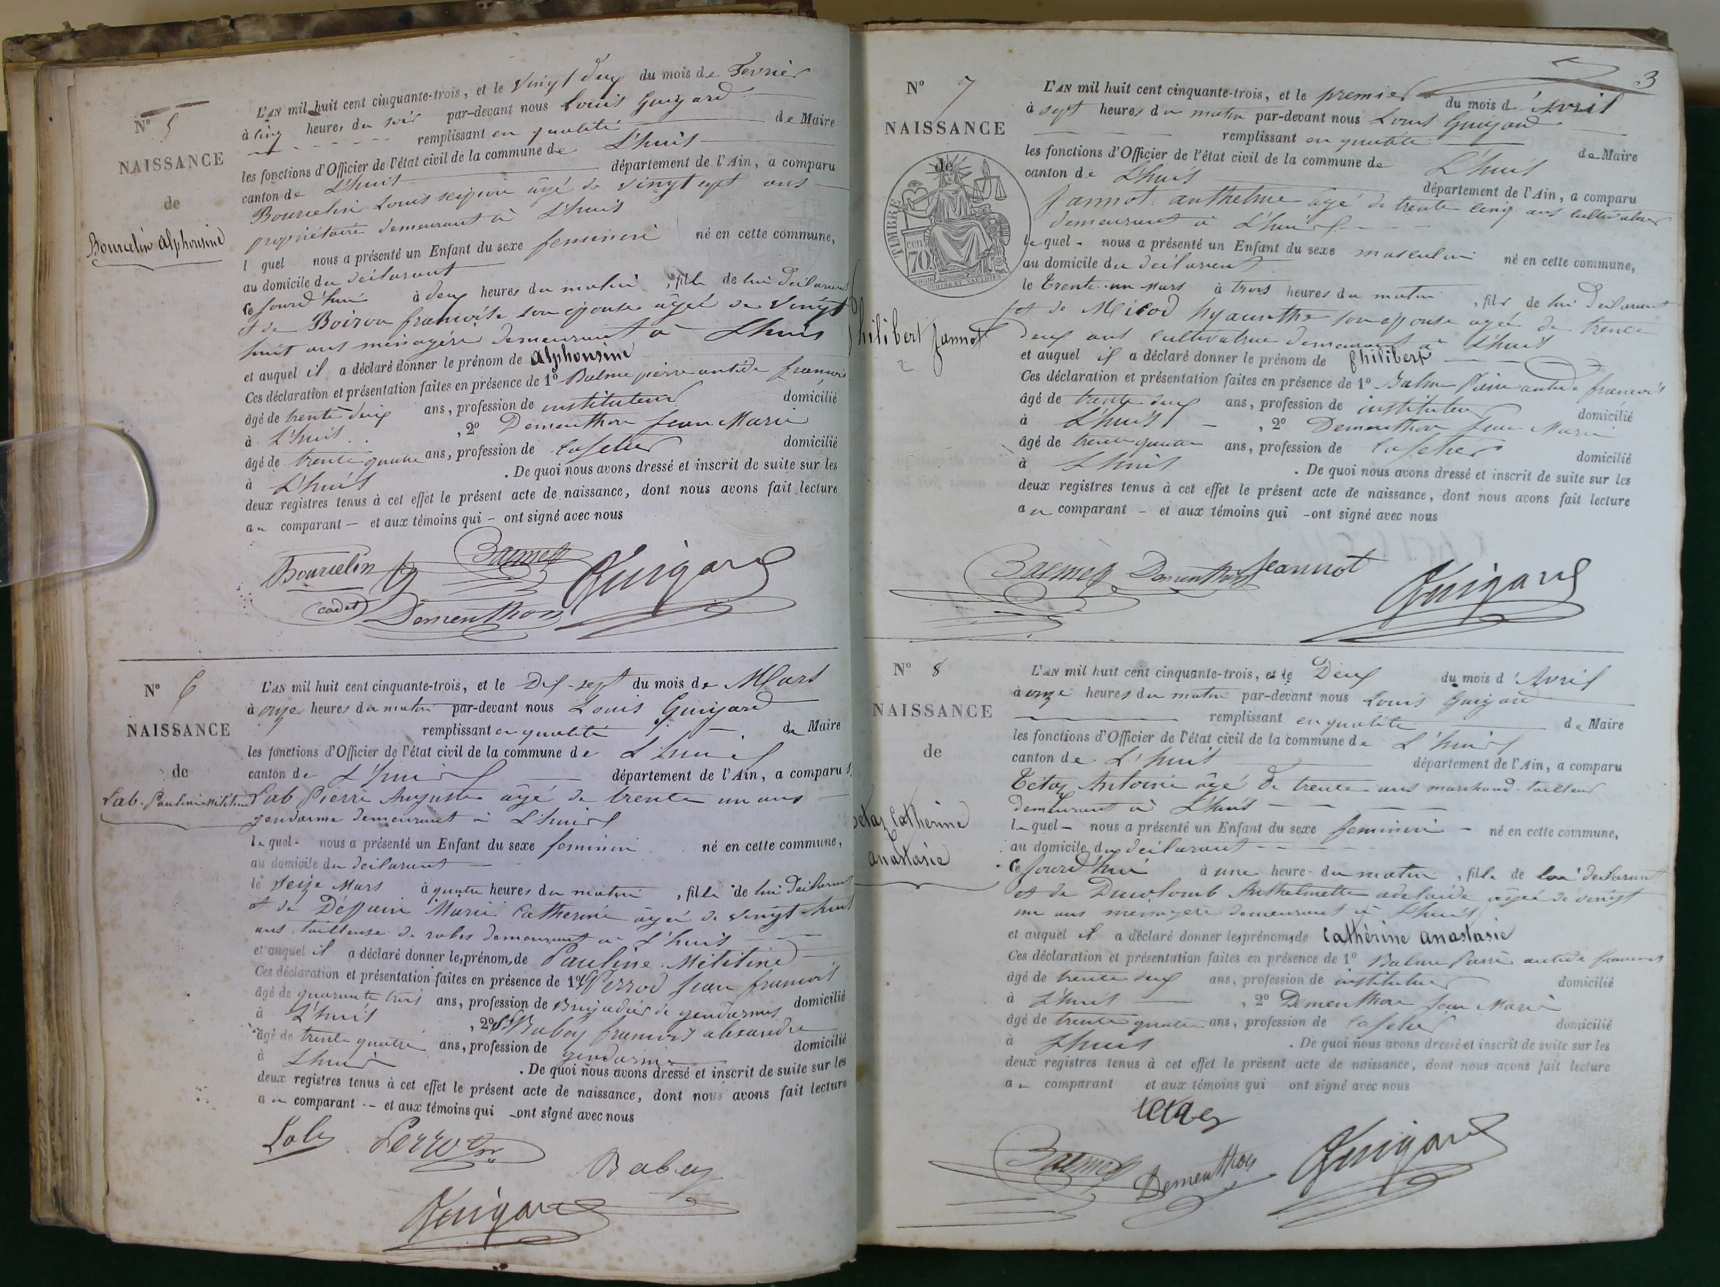 N° 5
NAISSANCE
de
Bourcelin Alphonsine
L'AN mil huit cent cinquante-trois, et le vingt deux du mois de Fevrier
à cinq heures du soir par-devant nous Louis Guigard
remplissant en qualité de Maire
les fonctions d'Officier de l'état civil de la commune de L'huis
canton de L'huis département de l'Ain, a comparu
Bourcelin Louis âgé de vingt sept ans
propriétaire demeurant à L'huis
l quel nous a présenté un Enfant du sexe feminin né en cette commune,
au domicile du déclarant
Ce jourd'hui à deux heures du matin, fille de lui déclarant
et de Boiron françoise son épouse agée de vingt
huit ans ménagère demeurant à L'huis
et auquel il a déclaré donner le prénom de Alphonsine
Ces déclaration et présentation faites en présence de 1° Balme pierre antide françois
âgé de trente six ans, profession de instituteur domicilié
à L'huis, 2° Dementhon Jean Marie
âgé de trente quatre ans, profession de cafetier domicilié
à L'huis. De quoi nous avons dressé et inscrit de suite sur les
deux registres tenus à cet effet le présent acte de naissance, dont nous avons fait lecture
au comparant – et aux témoins qui – ont signé avec nous
Bourcelin
cadet
Dementhon
Guigard
N° 6
NAISSANCE
de
Lab Pauline Mélitine
L'AN mil huit cent cinquante-trois, et le Dix-sept du mois de Mars
à onze heures du matin par-devant nous Louis Guigard
remplissant en qualité de Maire
les fonctions d'Officier de l'état civil de la commune de L'huis
canton de L'huis département de l'Ain, a comparu
Lab Pierre Auguste âgé de trente un ans
gendarme demeurant à L'huis
le quel nous a présenté un Enfant du sexe feminin né en cette commune,
au domicile du déclarant
le seize Mars à quatre heures du matin, fille de lui déclarant
et de Marie Catherine agée de vingt huit
ans tailleuse de robes demeurant à L'huis
et auquel il a déclaré donner les prénoms de Pauline Mélitine
Ces déclaration et présentation faites en présence de 1° Perrod Jean françois
âgé de quarante trois ans, profession de Brigadier de gendarmes domicilié
à L'huis, 2° Babey françois alexandre
âgé de trente quatre ans, profession de gendarme domicilié
à L'huis. De quoi nous avons dressé et inscrit de suite sur les
deux registres tenus à cet effet le présent acte de naissance, dont nous avons fait lecture
au comparant – et aux témoins qui – ont signé avec nous
Perrod
Babey
Guigard
3
N° 7
NAISSANCE
de
TIMBRE
70
Philibert Jannot
2
L'AN mil huit cent cinquante-trois, et le premier du mois d'Avril
à sept heures du matin par-devant nous Louis Guigard
remplissant en qualité de Maire
les fonctions d'Officier de l'état civil de la commune de L'huis
canton de L'huis département de l'Ain, a comparu
Jannot anthelme âgé de trente cinq ans cultivateur
demeurant à L'huis
le quel – nous a présenté un Enfant du sexe masculin né en cette commune,
au domicile du déclarant
le Trente-un Mars à trois heures du matin, fils de lui déclarant
et de hyacinthe son épouse agée de trente
deux ans cultivatrice demeurant à L'huis
et auquel il a déclaré donner le prénom de philibert
Ces déclaration et présentation faites en présence de 1° Balme Pierre antide françois
âgé de trente six ans, profession de instituteur domicilié
à L'huis – , 2° Dementhon Jean Marie
âgé de trente quatre ans, profession de cafetier domicilié
à L'huis. De quoi nous avons dressé et inscrit de suite sur les
deux registres tenus à cet effet le présent acte de naissance, dont nous avons fait lecture
au comparant – et aux témoins qui – ont signé avec nous
Dementhon
Jeannot
Guigard
N° 8
NAISSANCE
de
Tetaz Catherine
anastasie
L'AN mil huit cent cinquante-trois, et le Deux du mois d'Avril
à onze heures du matin par-devant nous Louis Guigard
remplissant en qualité de Maire
les fonctions d'Officier de l'état civil de la commune de L'huis
canton de L'huis département de l'Ain, a comparu
Tetaz Antoine âgé de trente ans marchand tailleur
demeurant à L'huis
le quel – nous a présenté un Enfant du sexe feminin – né en cette commune,
au domicile du déclarant
Ce jourd'hui à une heure du matin, fille de lui déclarant
et de Anthelmette adelaïde agée de vingt
un ans menagère demeurant à L'huis
et auquel il a déclaré donner les prénoms de Cathérine anastasie
Ces déclaration et présentation faites en présence de 1° Balme Pierre antide françois
âgé de trente six ans, profession de instituteur domicilié
à L'huis, 2° Dementhon Jean Marie
âgé de trente quatre ans, profession de cafetier domicilié
à L'huis. De quoi nous avons dressé et inscrit de suite sur les
deux registres tenus à cet effet le présent acte de naissance, dont nous avons fait lecture
au comparant et aux témoins qui ont signé avec nous
Dementhon
Guigard